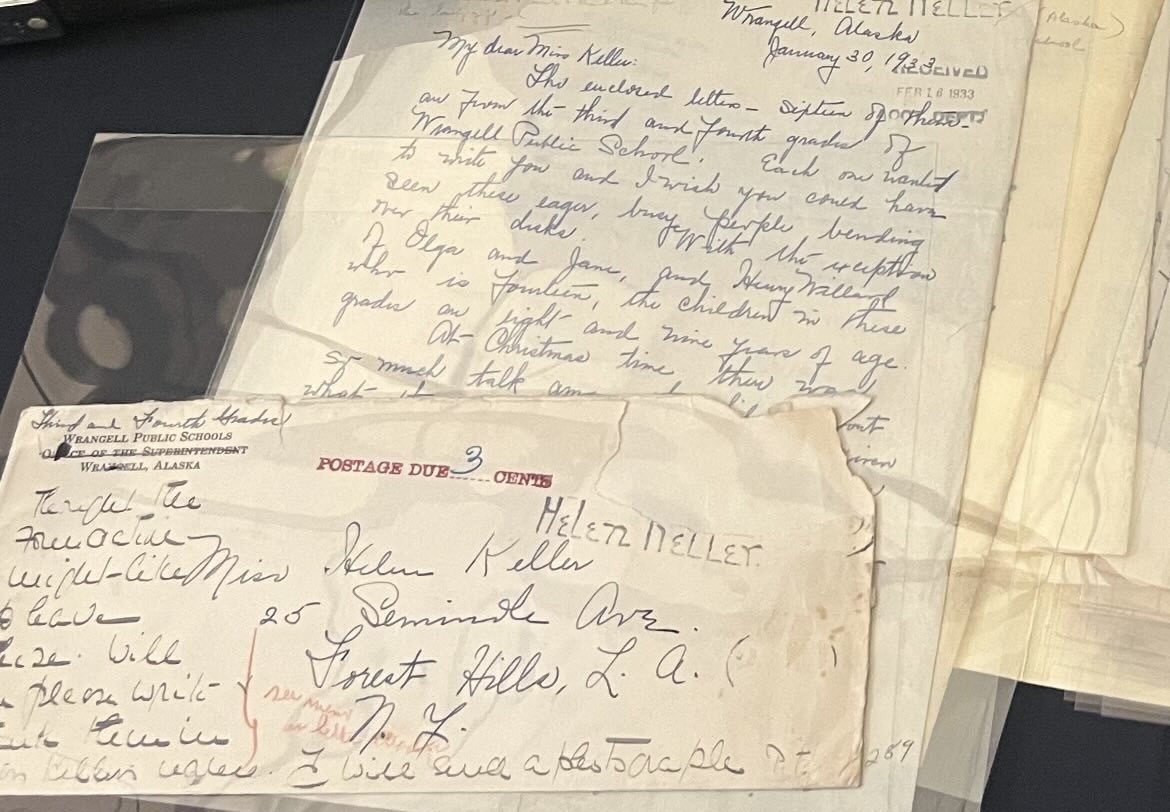 HELEN KELLER
(Alaska)
School
Wrangell, Alaska
January 30, 1933
RECEIVED
FEB 16 1933
My dear Miss Keller:
The enclosed letters - sixteen of them -
are from the third and fourth grades of
Wrangell Public School. Each one wanted
to write you and I wish you could have
seen these eager, busy people, bending
over their desks. With the exception
of Olga and Jane, and Henry Willard
who is fourteen, the children in these
grades are eight and nine years of age.
At Christmas time there was
so much talk
what
Third and Fourth Grades
WRANGELL PUBLIC SCHOOLS
OFFICE OF THE SUPERINTENDENT
WRANGELL, ALASKA
POSTAGE DUE 3 CENTS
HELEN KELLER
Miss Helen Keller
25 Seminole Ave.
Forest Hills, L. A.
N. Y.
thought the
might like
to have
Will
please write
see memo
on letter
I will send a photograph
289